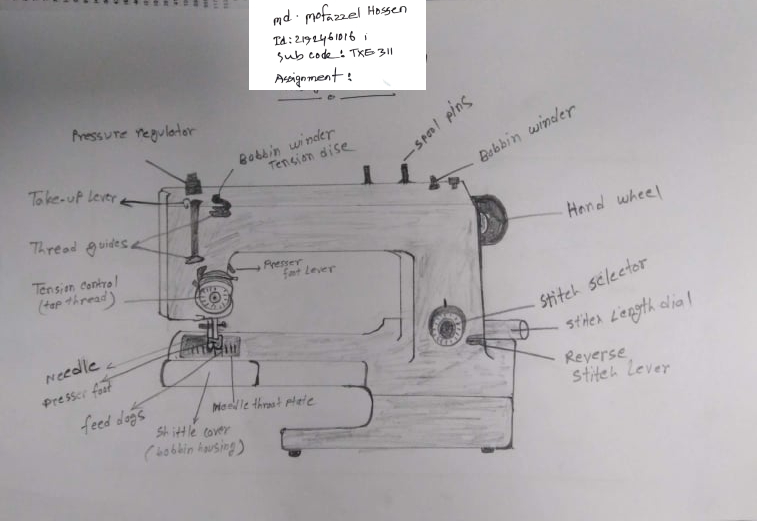 md. mofazzel Hossen
Id: 2192461016
Sub code: TXE 311
Assignment:
Pressure regulator
Bobbin winder
Tension disc
spool pins
Bobbin winder
Take-up Lever
Hand wheel
Thread guides
Presser
foot Lever
Tension control
(top thread)
Stitch selector
Stitch Length dial
Reverse
Stitch Lever
Needle
Presser foot
feed dogs
Needle throat plate
Shittle cover
(bobbin housing)